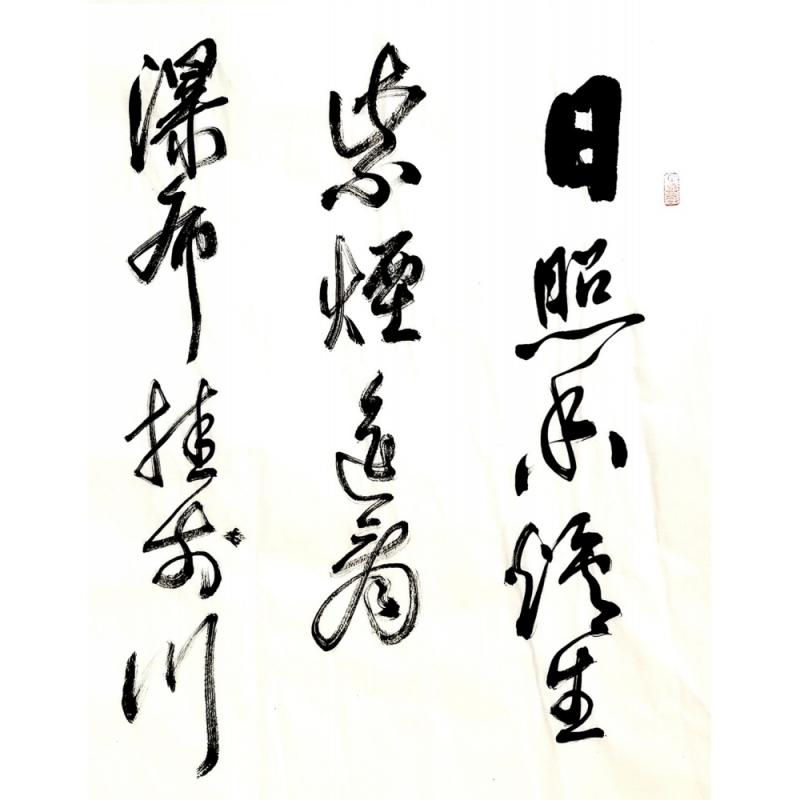 日照香爐生
紫煙遥看
瀑布挂前川